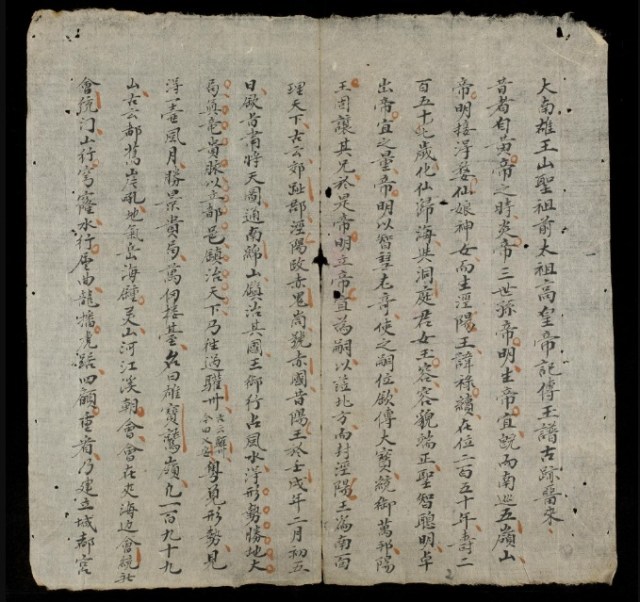 大南雄王山聖祖前太祖高皇帝記傳王譜古跡舊來
昔者自黃帝之時炎帝三世孫帝明生帝宜既而南廵五嶺山
帝明接得婺仙娘神女而生涇陽王諱祿續在位二百五十年壽二
百五十歲化仙歸海與洞庭君女王容容貌端正聖智聰明卓
出帝宜之量帝明以智雙老奇使之嗣位欲傳大寶統御萬邦陽
王固讓其兄於是帝明立帝宜為嗣以這北方而封涇陽王為南面
理天下古云郊趾郡涇陽政赤尾尚號赤國昔陽王於壬戌年二月初五
日厥旨肅將天固通南歸山鎮治其國王御行占風水浮形勢勝地大
局真毫貴脈以立都邑鎮治天下乃往過驩卅粵覓形勢見
浮一壺風月勝景貴局萬仞樓基名曰雄寶鷲嶺九一百九十九
山古云都萬岸乳地氣岳海鍾灵山河江溪朝會會在夾海边會統社
會統门山行萬靈水行曲龍蟠虎踞四顧重省乃建立城都宮